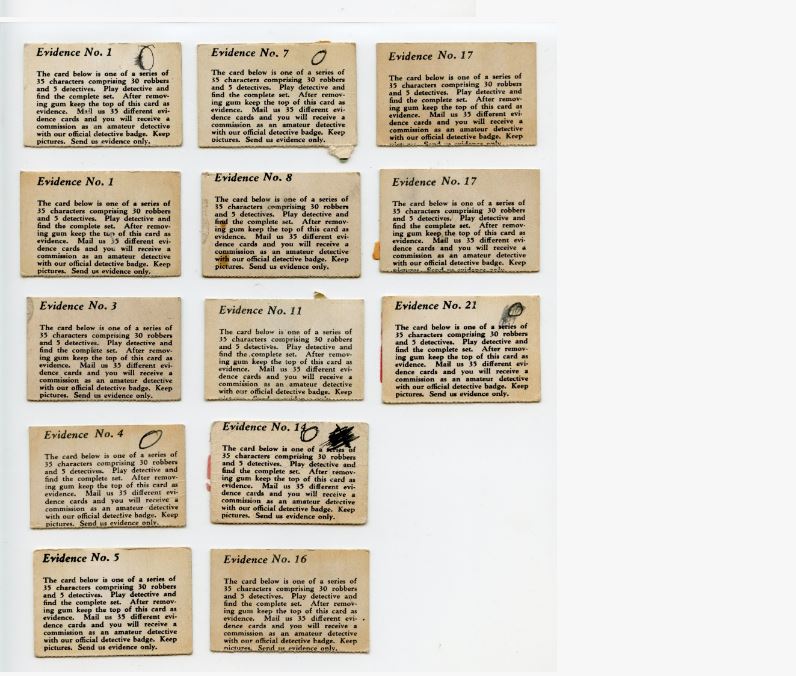 Evidence No. 1
The card below is one of a series of
35 characters comprising 30 robbers
and 5 detectives. Play detective and
find the complete set. After remov-
ing gum keep the top of this card as
evidence. Mail us 35 different evi-
dence cards and you will receive a
commission as an amateur detective
with our official detective badge. Keep
pictures. Send us evidence only.
Evidence No. 1
The card below is one of a series of
35 characters comprising 30 robbers
and 5 detectives. Play detective and
find the complete set. After remov-
ing gum keep the top of this card as
evidence. Mail us 35 different evi-
dence cards and you will receive a
commission as an amateur detective
with our official detective badge. Keep
pictures. Send us evidence only.
Evidence No. 3
The card below is one of a series of
35 characters comprising 30 robbers
and 5 detectives. Play detective and
find the complete set. After remov-
ing gum keep the top of this card as
evidence. Mail us 35 different evi-
dence cards and you will receive a
commission as an amateur detective
with our official detective badge. Keep
pictures. Send us evidence only.
Evidence No. 4
The card below is one of a series of
35 characters comprising 30 robbers
and 5 detectives. Play detective and
find the complete set. After remov-
ing gum keep the top of this card as
evidence. Mail us 35 different evi-
dence cards and you will receive a
commission as an amateur detective
with our official detective badge. Keep
pictures. Send us evidence only.
Evidence No. 5
The card below is one of a series of
35 characters comprising 30 robbers
and 5 detectives. Play detective and
find the complete set. After remov-
ing gum keep the top of this card as
evidence. Mail us 35 different evi-
dence cards and you will receive a
commission as an amateur detective
with our official detective badge. Keep
pictures. Send us evidence only.
Evidence No. 7
The card below is one of a series of
35 characters comprising 30 robbers
and 5 detectives. Play detective and
find the complete set. After remov-
ing gum keep the top of this card as
evidence. Mail us 35 different evi-
dence cards and you will receive a
commission as an amateur detective
with our official detective badge. Keep
pictures. Send us evidence only.
Evidence No. 8
The card below is one of a series of
35 characters comprising 30 robbers
and 5 detectives. Play detective and
find the complete set. After remov-
ing gum keep the top of this card as
evidence. Mail us 35 different evi-
dence cards and you will receive a
commission as an amateur detective
with our official detective badge. Keep
pictures. Send us evidence only.
Evidence No. 11
The card below is one of a series of
35 characters comprising 30 robbers
and 5 detectives. Play detective and
find the complete set. After remov-
ing gum keep the top of this card as
evidence. Mail us 35 different evi-
dence cards and you will receive a
commission as an amateur detective
with our official detective badge. Keep
Evidence No. 14
The card below is one of a series of
35 characters comprising 30 robbers
and 5 detectives. Play detective and
find the complete set. After remov-
ing gum keep the top of this card as
evidence. Mail us 35 different evi-
dence cards and you will receive a
commission as an amateur detective
with our official detective badge. Keep
pictures. Send us evidence only.
Evidence No. 16
The card below is one of a series of
35 characters comprising 30 robbers
and 5 detectives. Play detective and
find the complete set. After remov-
ing gum keep the top of this card as
evidence. Mail us 35 different evi-
dence cards and you will receive a
commission as an amateur detective
with our official detective badge. Keep
pictures. Send us evidence only.
Evidence No. 17
The card below is one of a series of
35 characters comprising 30 robbers
and 5 detectives. Play detective and
find the complete set. After remov-
ing gum keep the top of this card as
evidence. Mail us 35 different evi-
dence cards and you will receive a
commission as an amateur detective
with our official detective badge. Keep
Evidence No. 17
The card below is one of a series of
35 characters comprising 30 robbers
and 5 detectives. Play detective and
find the complete set. After remov-
ing gum keep the top of this card as
evidence. Mail us 35 different evi-
dence cards and you will receive a
commission as an amateur detective
with our official detective badge. Keep
Evidence No. 21
The card below is one of a series of
35 characters comprising 30 robbers
and 5 detectives. Play detective and
find the complete set. After remov-
ing gum keep the top of this card as
evidence. Mail us 35 different evi-
dence cards and you will receive a
commission as an amateur detective
with our official detective badge. Keep
pictures. Send us evidence only.